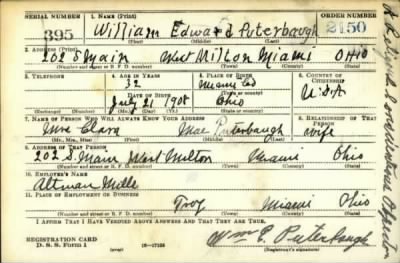 SERIAL NUMBER 1. NAME (Print) ORDER NUMBER
395 William Edward Puterbaugh 2150
(First) (Middle) (Last)
2. ADDRESS (Print)
202 S Main West Milton Miami Ohio
(Number and street or R. F. D. number) (Town) (County) (State)
3. TELEPHONE 4. AGE IN YEARS 5. PLACE OF BIRTH 6. COUNTRY OF CITIZENSHIP
32 Miami Co
DATE OF BIRTH (Town or county)
July 21 1908 Ohio U.S.A
(Exchange) (Number) (Mo.) (Day) (Yr.) (State or country)
7. NAME OF PERSON WHO WILL ALWAYS KNOW YOUR ADDRESS 8. RELATIONSHIP OF THAT PERSON
Mrs Clara Mae Puterbaugh wife
(Mr., Mrs., Miss) (First) (Middle) (Last)
9. ADDRESS OF THAT PERSON
202 S. Main West Milton Miami Ohio
(Number and street or R. F. D. number) (Town) (County) (State)
10. EMPLOYER'S NAME
11. PLACE OF EMPLOYMENT OR BUSINESS
Troy Miami Ohio
(Number and street or R. F. D. number) (Town) (County) (State)
I AFFIRM THAT I HAVE VERIFIED ABOVE ANSWERS AND THAT THEY ARE TRUE.
REGISTRATION CARD
D. S. S. Form 1 (over) Wm E. Puterbaugh
(Registrant's signature)
Conscientious Objector